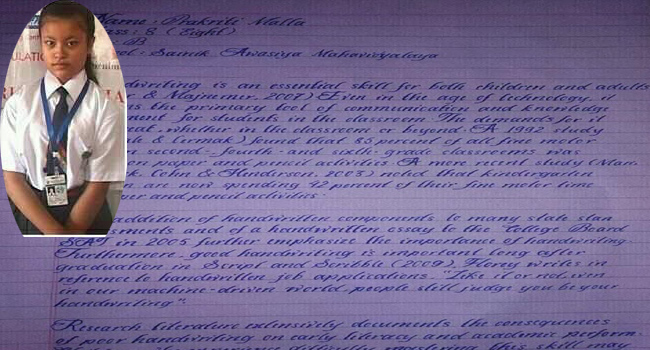 Name : Prakriti Malla
ss : 8 (Eight)
: B
ol : Sainik Awasiya Mahavidyalaya
dwriting is an essential skill for both children and adults
& Majnemer, 2007) Even in the age of technology, it
s the primary tool of communication and knowledge
ment for students in the classroom. The demands for it
eat, whether in the classroom or beyond. A 1992 study
h & Cermak) found that 85 percent of all fine motor
second-, fourth- and sixth-grade classrooms was
on paper and pencil activities. A more recent study (Marr,
k, Cohn & Henderson, 2003) noted that kindergarten
n are now spending 42 percent of their fine motor time
er and pencil activities.
addition of handwritten components to many state stan
ssments and of a handwritten essay to the College Board
SAT in 2005 further emphasize the importance of handwriting.
Furthermore, good handwriting is important long after
graduation in Script and Scribble (2009), Florey writes in
reference to handwritten job applications, "Like it or not, even
in our machine-driven world, people still judge you by your
handwriting".
Research literature extensively documents the consequences
of poor handwriting on early literacy and academic perform-
difficulty mastering this skill may